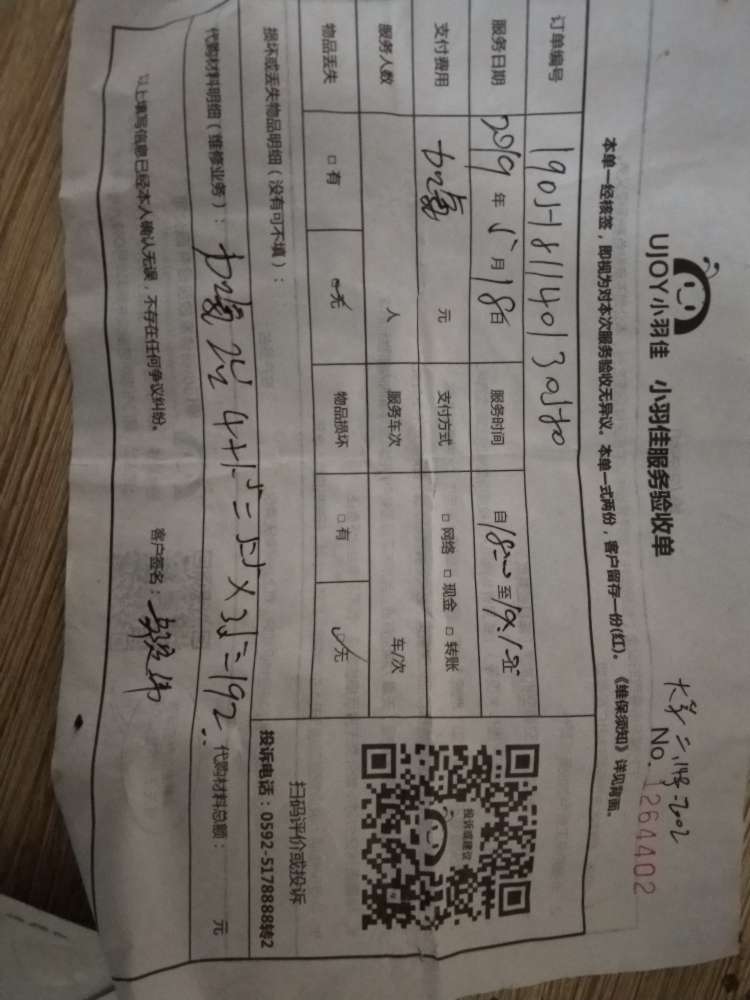 UJOY小羽佳 小羽佳服务验收单
No. 1264402
本单一经核签，即视为对本次服务验收无异议。本单一式两份，客户留存一份(红)。《维保须知》详见背面。
订单编号
服务日期 2019 年 5 月 18 日 服务时间 自 至
支付费用 加氟 元 支付方式 □ 网络 □ 现金 □ 转账
服务人数 人 服务车次 车/次
物品丢失 □ 有 □ 无 物品损坏 □ 有 □ 无
投诉或建议
扫码评价或投诉
投诉电话：0592-5178888转2
损坏或丢失物品明细（没有可不填）：
代购材料明细（维修业务）：加氟 =192 代购材料总额： 元
以上填写信息已经本人确认无误，不存在任何争议纠纷。 客户签名：